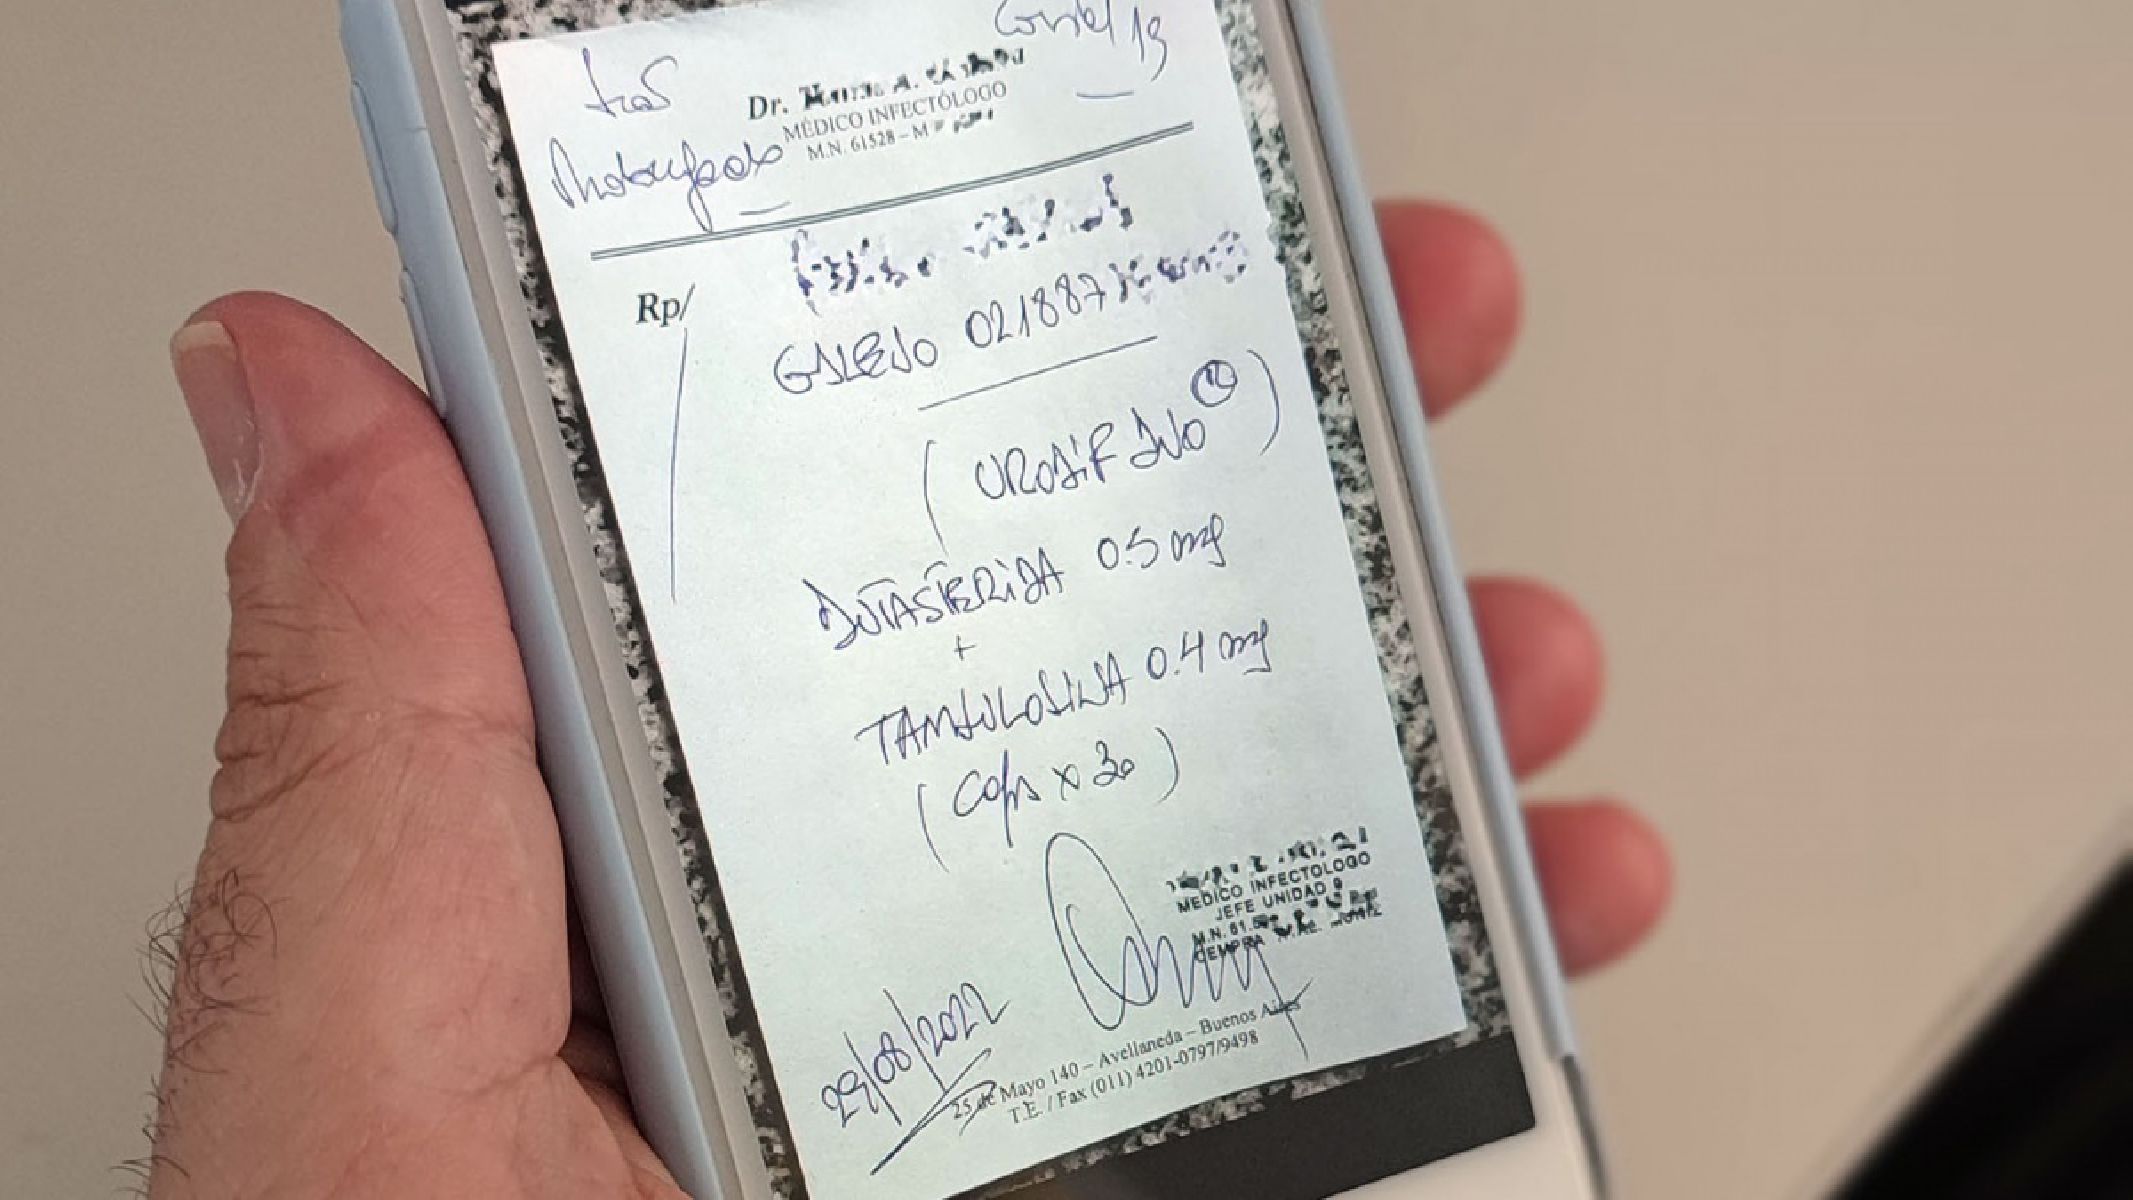 Covid 19
tras
Dr.
MÉDICO INFECTÓLOGO
M.N. 61528 – M
Rp/
GALENO 021887
(UROSIF DUO)
DUTASTERIDA 0.5 mg
+
TAMSULOSINA 0.4 mg
(caps x 30)
MEDICO INFECTOLOGO
JEFE UNIDAD 9
M.N. 61.5
CEMPRA
29/08/2022
25 de Mayo 140 – Avellaneda – Buenos Aires
T.E. / Fax (011) 4201-0797/9498